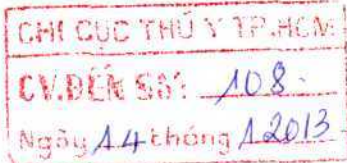 CHI CỤC THÚ Y TP.HCM
CV.ĐẾN SỐ: 108.
Ngày 14 tháng 1 2013